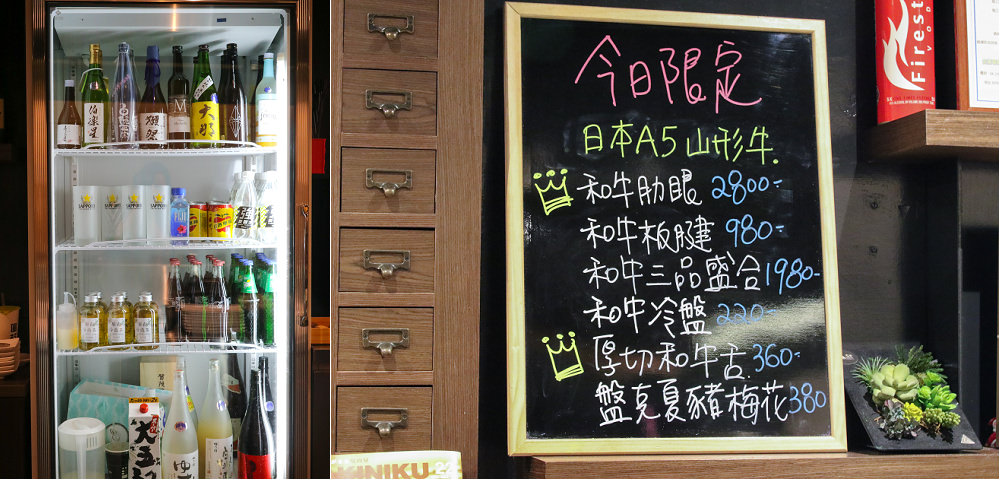 伯楽星
獺祭
M
大那
SAPPORO
SAPPORO
SAPPORO
FIJI
大五
ゆず
今日限定
日本A5山形牛.
和牛肋眼 2800-
和牛板腱 980-
和牛三品盛合 1980-
和牛冷盤 220-
厚切和牛舌. 360-
盤克夏豬梅花 380
Firest
VOD
KINIKU